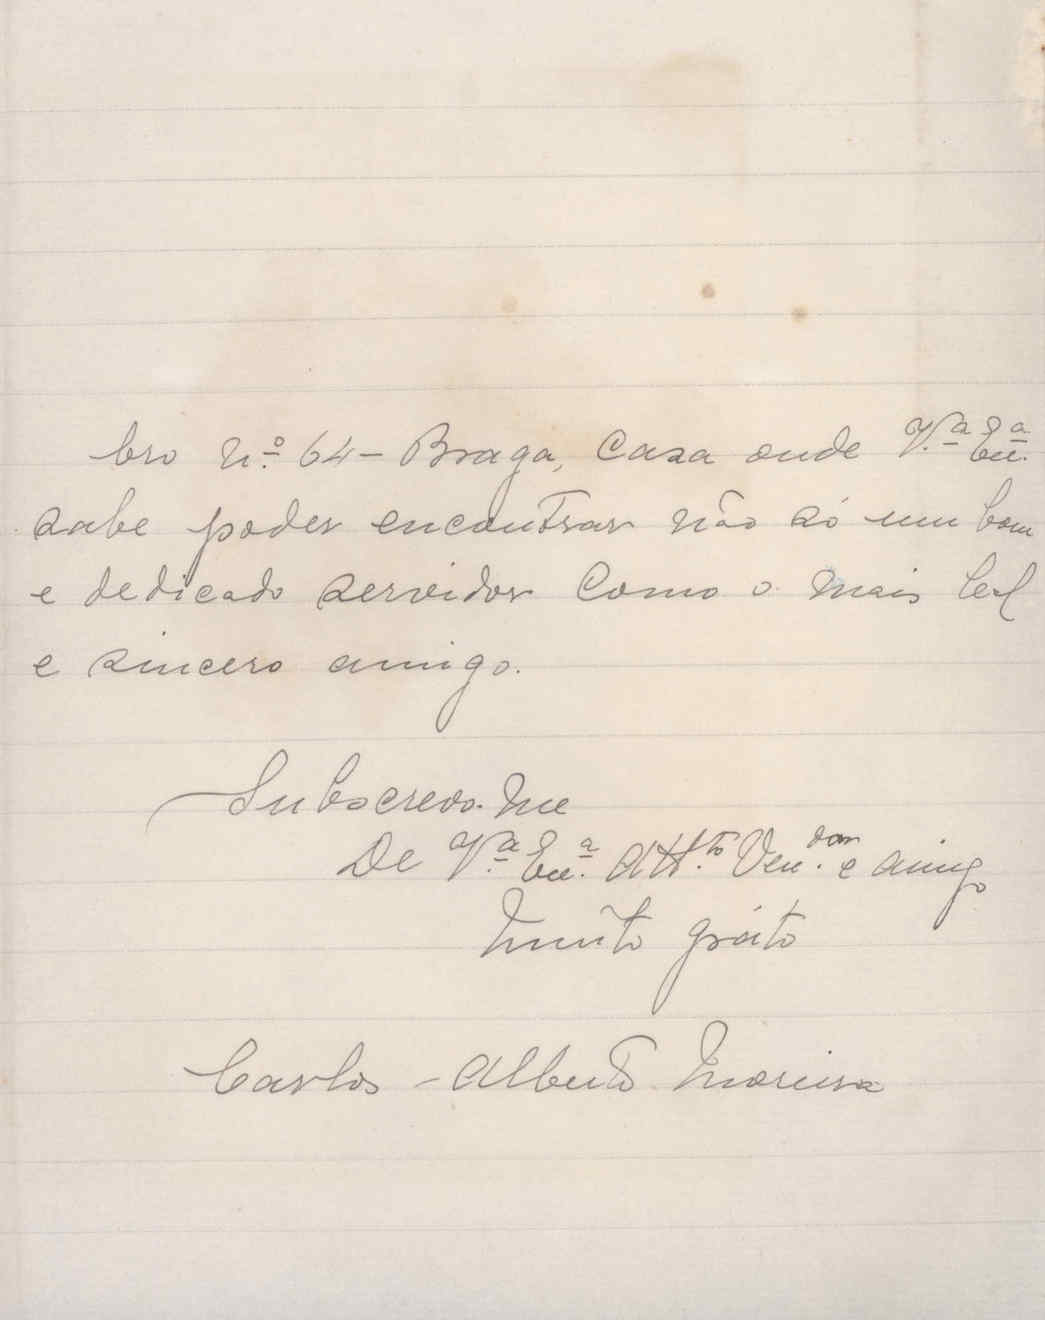 bro N.º 64 - Braga, Casa onde V.ª Ex.ª
sabe poder encontrar não só um bom
e dedicado servidor Como o mais leal
e sincero amigo.
Subscrevo-me
De V.ª Ex.ª Att.to Ven.dor e amigo
Muito gráto
Carlos - Alberto Moreira